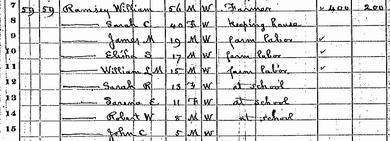 7 59 59 Ramsey William 56 M W Farmer 400 200
8 Sarah C 40 F W Keeping house
9 James M 19 M W farm labor
10 Elisha S 17 M W farm labor
11 William L M 15 M W farm labor
12 Sarah R 13 F W at school
13 Sarena E 11 F W at school
14 Robert W 8 M W at school
15 John C 5 M W